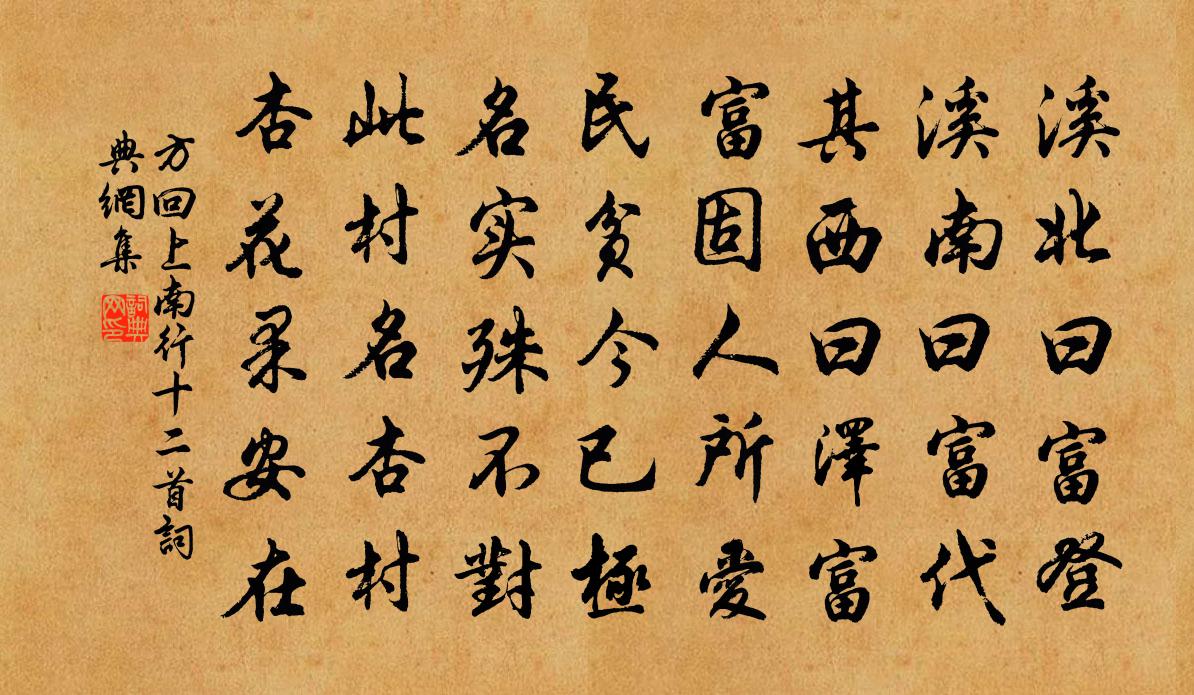 溪北曰富登
溪南曰富代
其西曰澤富
富固人所愛
民貧今已極
名实殊不對
此村名杏村
杏花果安在
方回上南行十二首詞
典網集
詞典網印